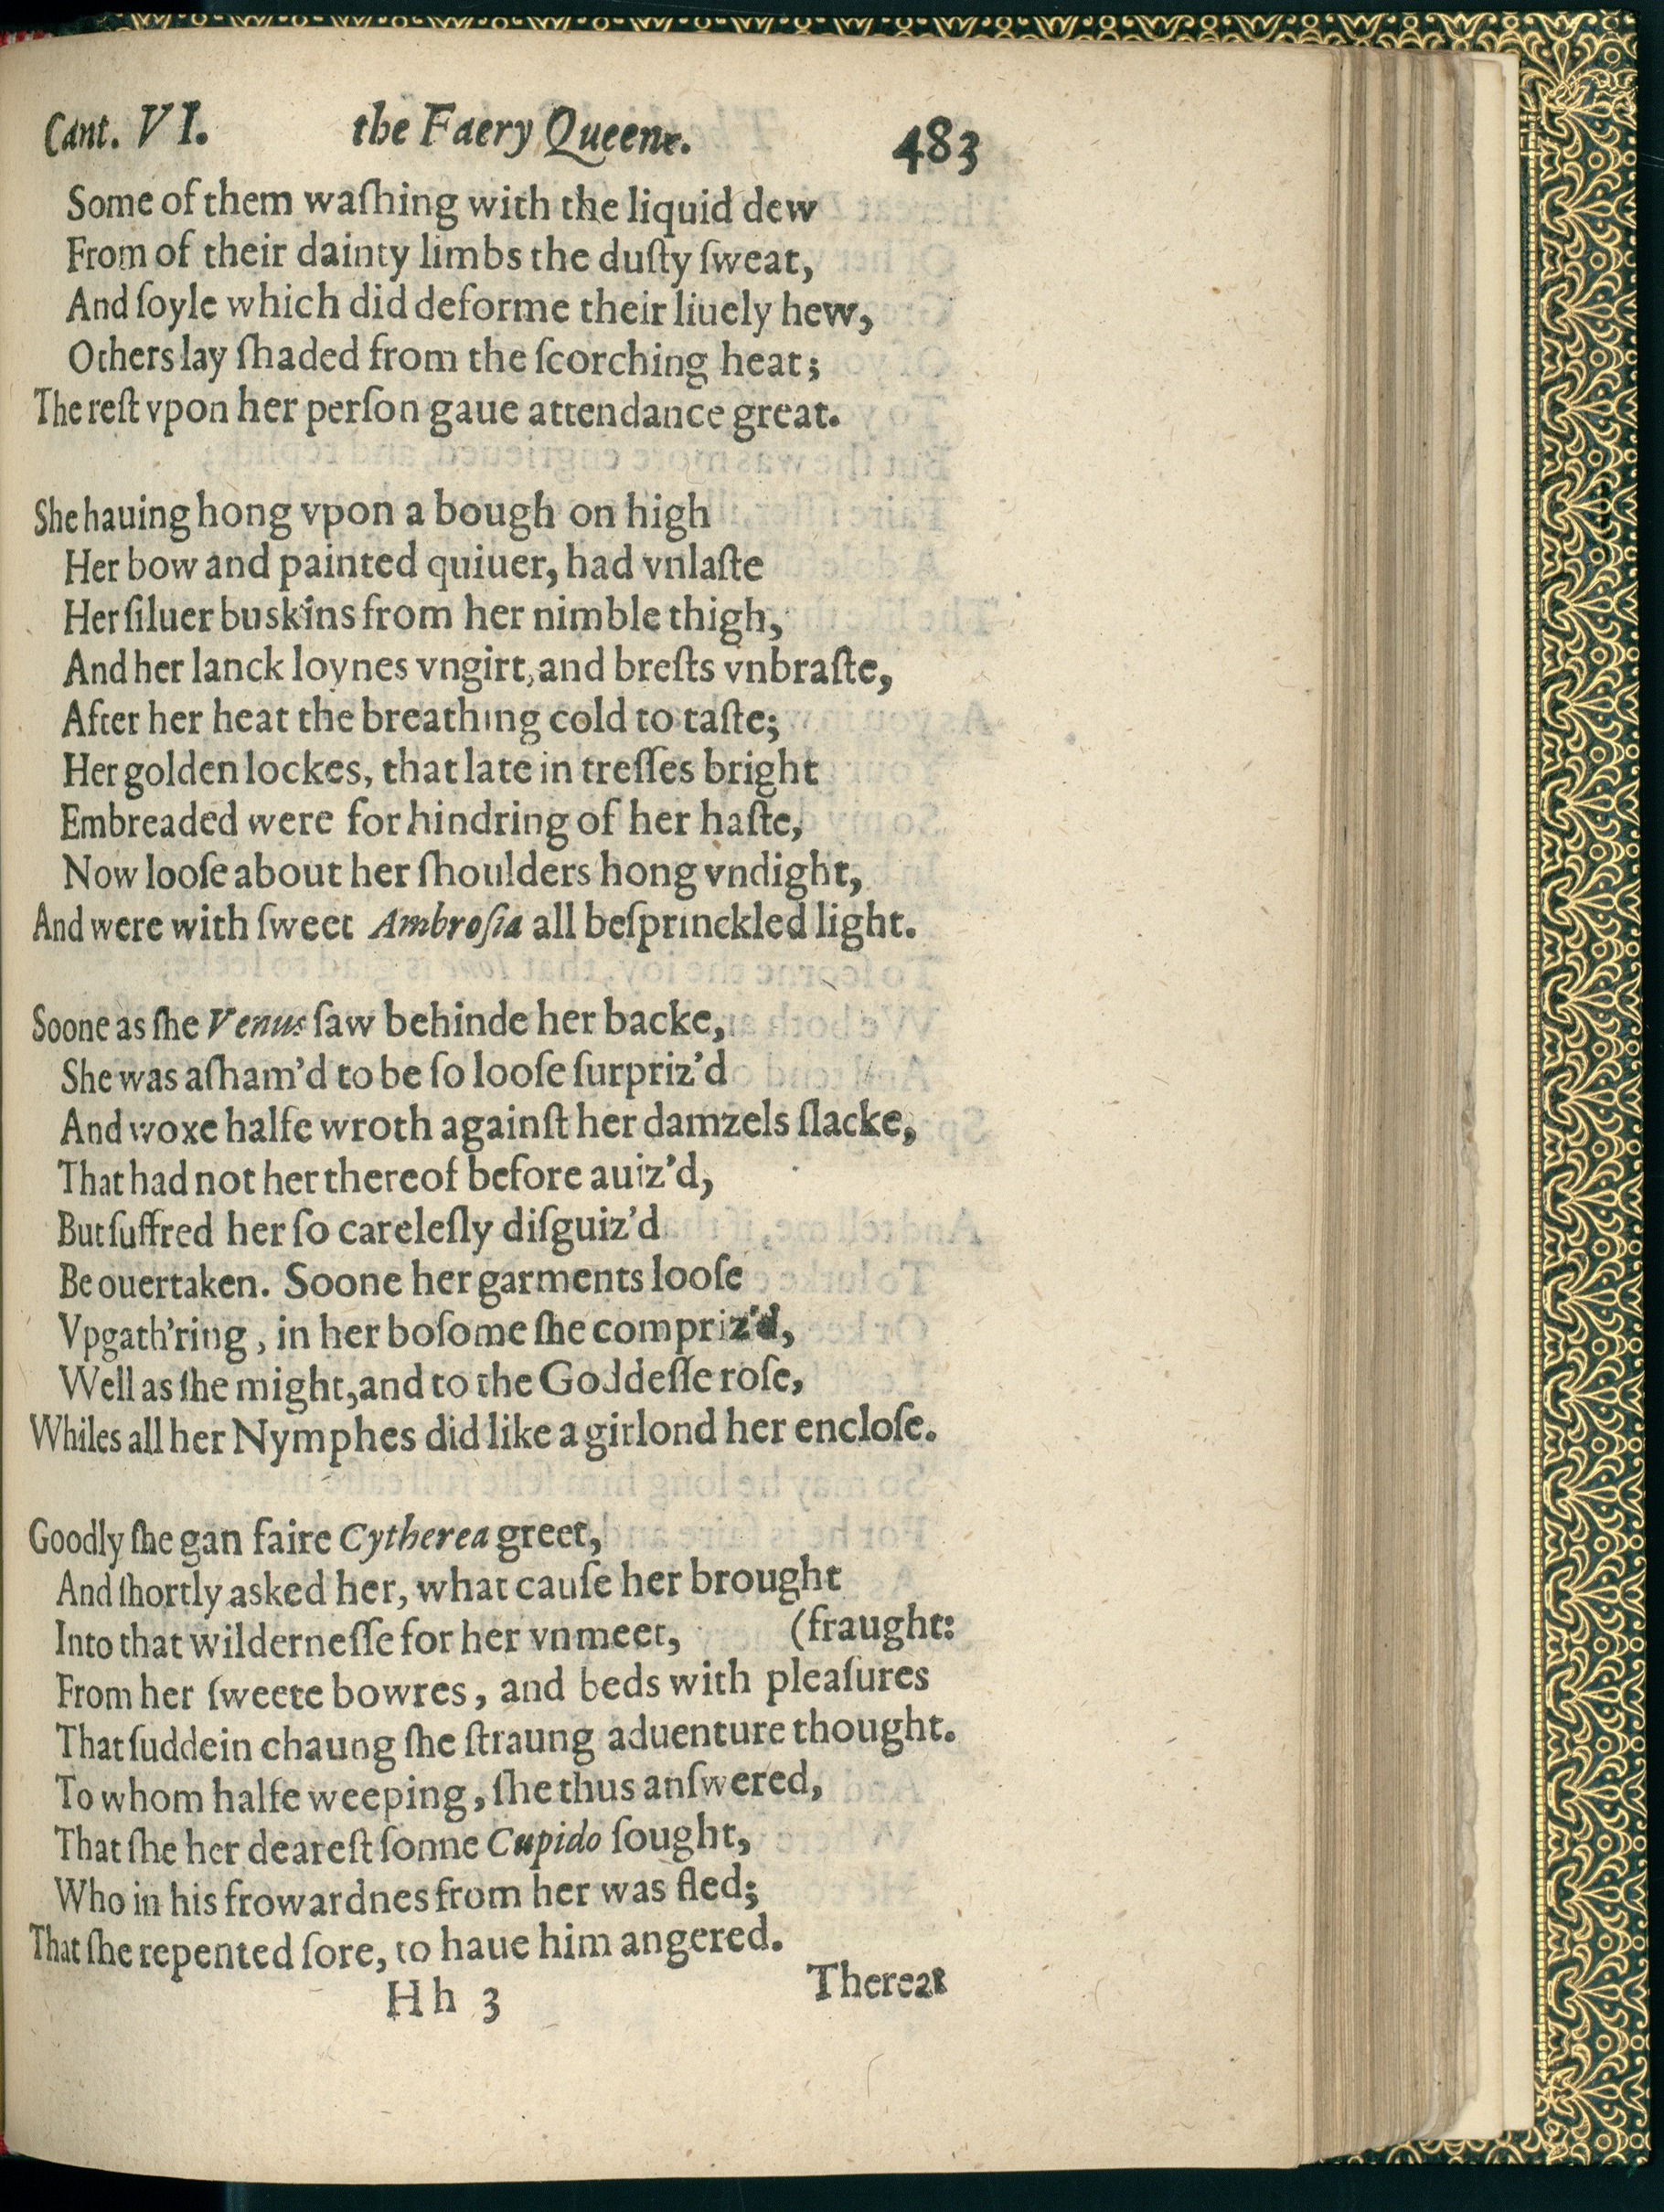 Cant. VI. the Faery Queene. 483
Some of them waſhing with the liquid dew
From of their dainty limbs the duſty ſweat,
And ſoyle which did deforme their liuely hew,
Others lay ſhaded from the ſcorching heat;
The reſt vpon her perſon gaue attendance great.
She hauing hong vpon a bough on high
Her bow and painted quiuer, had vnlaſte
Her ſiluer buskins from her nimble thigh,
And her lanck loynes vngirt, and breſts vnbraſte,
After her heat the breathing cold to taſte;
Her golden lockes, that late in treſſes bright
Embreaded were for hindring of her haſte,
Now looſe about her ſhoulders hong vndight,
And were with ſweet Ambroſia all beſprinckled light.
Soone as ſhe Venus ſaw behinde her backe,
She was aſham'd to be ſo looſe ſurpriz'd
And woxe halfe wroth againſt her damzels ſlacke,
That had not her thereof before auiz'd,
But ſuffred her ſo careleſly diſguiz'd
Be ouertaken. Soone her garments looſe
Vpgath'ring, in her boſome ſhe compriz'd,
Well as ſhe might, and to the Goddeſſe roſe,
Whiles all her Nymphes did like a girlond her encloſe.
Goodly ſhe gan faire Cytherea greet,
And ſhortly asked her, what cauſe her brought
Into that wilderneſſe for her vnmeet, (fraught:
From her ſweete bowres, and beds with pleaſures
That ſuddein chaung ſhe ſtraung aduenture thought.
To whom halfe weeping, ſhe thus anſwered,
That ſhe her deareſt ſonne Cupido ſought,
Who in his frowardnes from her was fled;
That ſhe repented ſore, to haue him angered.
Hh 3 Thereat